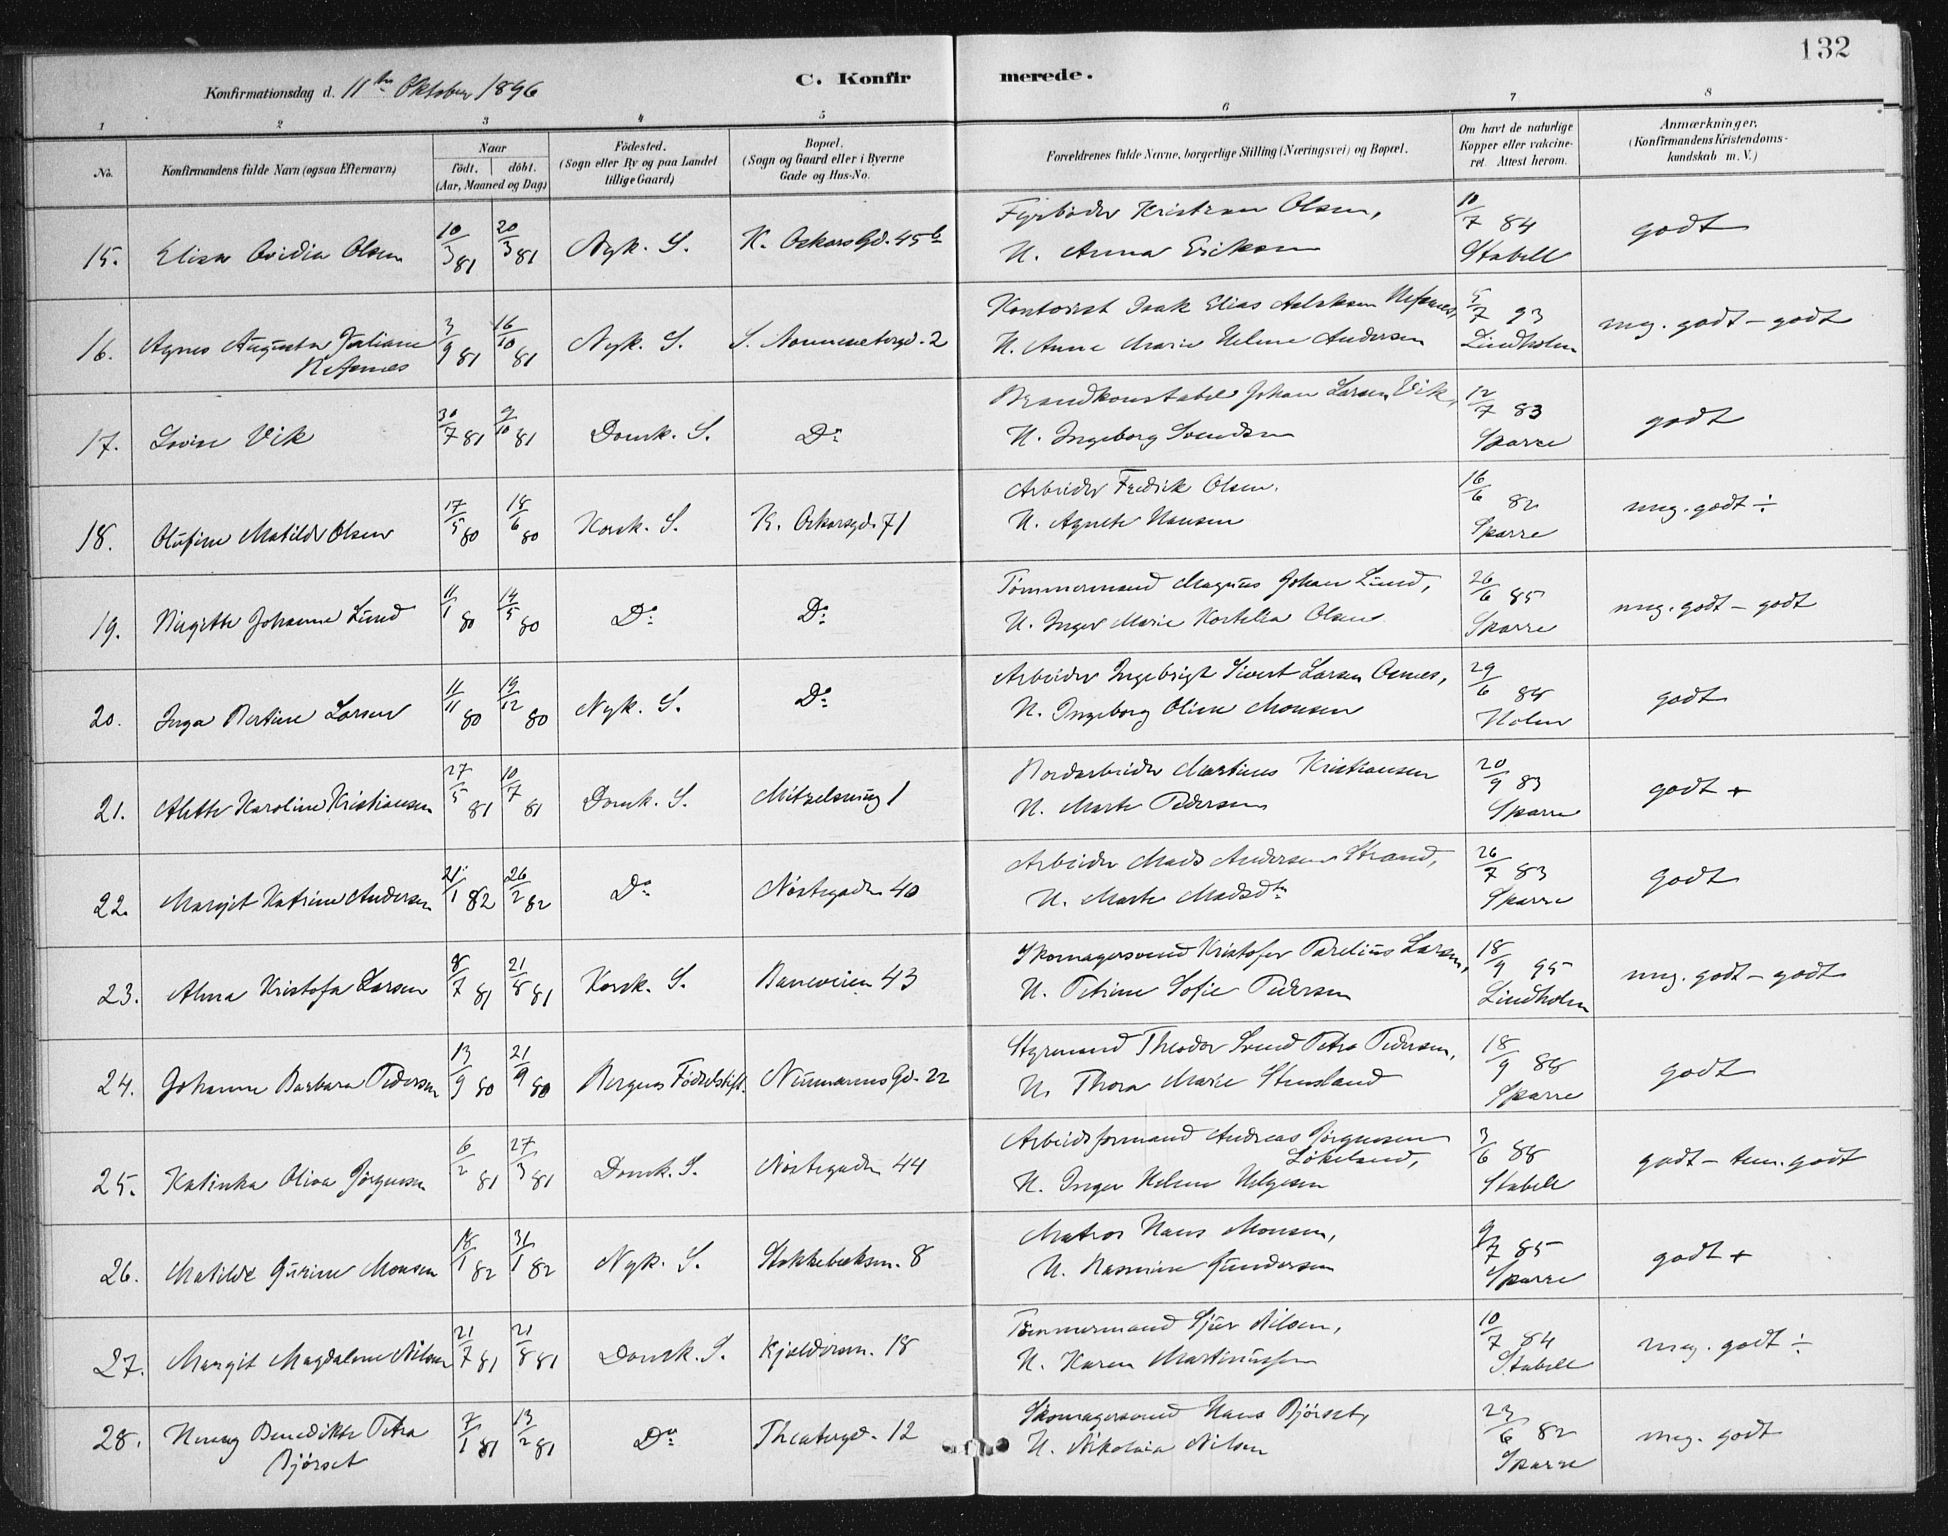 132
Konfirmationsdag d. 11te Oktober 1896
C. Konfirmerede.
1 2 3 4 5 6 7 8
No. Konfirmandens fulde Navn (ogsaa Efternavn) Naar født. døbt. (Aar, Maaned og Dag) Fødested. (Sogn eller By og paa Landet tillige Gaard) Bopæl. (Sogn og Gaard eller i Byerne Gade og Hus-No. Forældrenes fulde Navne, borgerlige Stilling (Næringsvei) og Bopæl. Om havt de naturlige Kopper eller vaccineret. Attest herom. Anmærkninger. (Konfirmandens Kristendomskundskab m. V.)
15. Elisa Ovidia Olsen 10/3 81 20/3 81 Nyk. S. K. Oskars Gd. 45 b Fyrbøder Kristian Olsen, 10/7 84 godt
H. Anna Eriksen Stabell
16. Agnes Augusta Juliane 3/9 81 16/10 81 Nyk. S. S. Nonnesetergd. 2 Kontorist Isak Elias Aslaksen Refsnes, 5/7 93 mg. godt - godt
Refsnes H. Anne Marie Helene Andersen Lindholm
17. Lovise Vik 30/7 81 9/10 81 Domk. S. Do Brandkonstabel Johan Larsen Vik, 12/7 83 godt
H. Ingeborg Svendsen Sparre
18. Olufine Matilde Olsen 17/5 80 18/6 80 Korsk. S. K. Oskarsgd. 71 Arbeider Fredrik Olsen. 16/6 82 mg. godt ÷
H. Agnete Hansen Sparre
19. Birgitte Johanne Lund 11/1 80 14/5 80 Do Do Tømmermand Magnus Johan Lund, 26/6 85 mg. godt - godt
H. Inger Marie Kornelia Olsen Sparre
20. Inga Bertine Larsen 11/11 80 19/12 80 Nyk. S. Do Arbeider Ingebrigt Sivert Larsen Osnes, 29/6 88 godt
H. Ingeborg Oline Monsen Holm
21. Alette Karoline Kristiansen 27/5 81 10/7 81 Domk. S. Mitzelsmug 1 Bordarbeider Martinus Kristiansen 20/9 83 godt +
H. Marte Pedersen Sparre
22. Margit Katrine Andersen 21/1 82 26/2 82 Do Nøstegaden 40 Arbeider Mads Andersen Strand, 26/7 83 godt
H. Marte Madsdtr Sparre
23. Alma Kristofa Larsen 8/7 81 21/8 81 Korsk. S. Baneveien 43 Skomagersvend Kristofer Parelius Larsen, 18/9 95 mg. godt - godt
H. Petrine Sofie Pedersen Lindholm
24. Johanne Barbara Pedersen 13/9 80 21/9 80 Bergens Fødselstift. Neumanns Gd. 22 Styrmand Theodor Svend Petra Pedersen, 18/9 88 godt
H. Thora Marie Stensland Sparre
25. Katinka Oliva Jørgensen 6/2 81 27/3 81 Domk. S. Nøstegaden 44 Arbeidsformand Andreas Jørgensen 3/6 88 godt - tem. godt
Løkeland,
H. Inger Helene Helgesen Stabell
26. Matilde Gurine Monsen 18/1 82 31/1 82 Nyk. S. Stokkebæksm. 8 Matros Hans Monsen, 9/7 85 godt +
H. Rasmine Gundersen Sparre
27. Margit Magdalene Nilsen 21/7 81 21/8 81 Domk. S. Kjeldersm. 18 Tømmermand Sjur Nilsen, 10/7 84 meg. godt ÷
H. Karen Martinussen Stabell
28. Henny Benedikte Petra 7/1 81 13/2 81 Do Theatergd. 12 Skomagersvend Hans Bjørset, 23/6 82 meg. godt
Bjørset H. Nikolaia Nilsen Sparre